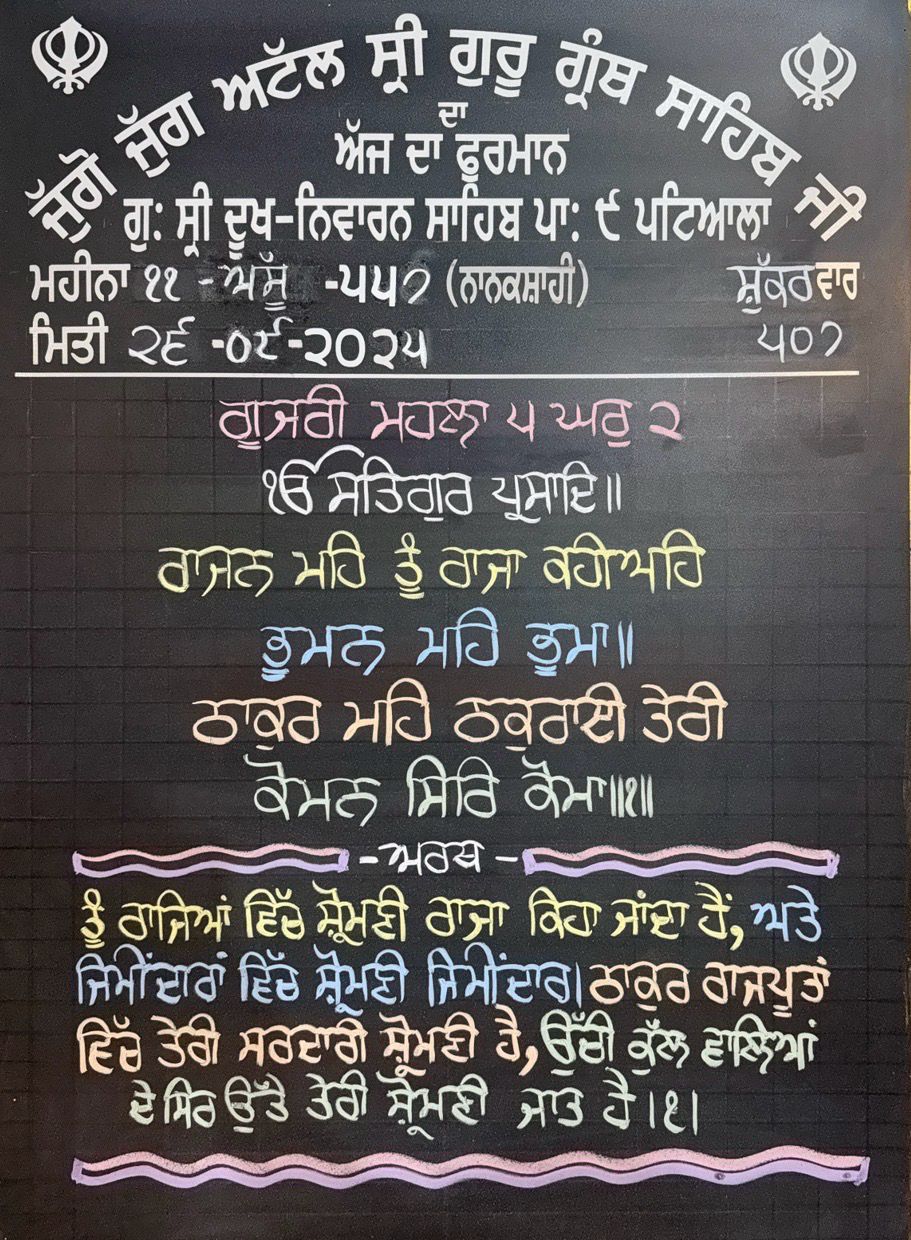 ਜੁੱਗੋ ਜੁੱਗ ਅਟੱਲ ਸ੍ਰੀ ਗੁਰੂ ਗ੍ਰੰਥ ਸਾਹਿਬ ਜੀ
ਦਾ
ਅੱਜ ਦਾ ਫੁਰਮਾਨ
ਗੁ: ਸ੍ਰੀ ਦੂਖ-ਨਿਵਾਰਨ ਸਾਹਿਬ ਪਾ: ੯ ਪਟਿਆਲਾ
ਮਹੀਨਾ ੧੧ - ਅੱਸੂ -੫੫੭ (ਨਾਨਕਸ਼ਾਹੀ) ਸ਼ੁੱਕਰਵਾਰ
ਮਿਤੀ ੨੬ -੦੯-੨੦੨੫ ੫੦੭
ਗੂਜਰੀ ਮਹਲਾ ੫ ਘਰੁ ੨
ੴ ਸਤਿਗੁਰ ਪ੍ਰਸਾਦਿ॥
ਰਾਜਨ ਮਹਿ ਤੂੰ ਰਾਜਾ ਕਹੀਅਹਿ
ਭੂਮਨ ਮਹਿ ਭੂਮਾ॥
ਠਾਕੁਰ ਮਹਿ ਠਕੁਰਾਈ ਤੇਰੀ
ਕੋਮਨ ਸਿਰਿ ਕੋਮਾ॥੧॥
-ਅਰਥ-
ਤੂੰ ਰਾਜਿਆਂ ਵਿੱਚ ਸ਼੍ਰੋਮਣੀ ਰਾਜਾ ਕਿਹਾ ਜਾਂਦਾ ਹੈਂ, ਅਤੇ
ਜਿਮੀਂਦਾਰਾਂ ਵਿੱਚ ਸ਼੍ਰੋਮਣੀ ਜਿਮੀਂਦਾਰ। ਠਾਕੁਰ ਰਾਜਪੂਤਾਂ
ਵਿੱਚ ਤੇਰੀ ਸਰਦਾਰੀ ਸ਼੍ਰੋਮਣੀ ਹੈ, ਉੱਚੀ ਕੁੱਲ ਵਾਲਿਆਂ
ਦੇ ਸਿਰ ਉੱਤੇ ਤੇਰੀ ਸ਼੍ਰੋਮਣੀ ਜਾਤ ਹੈ।੧।